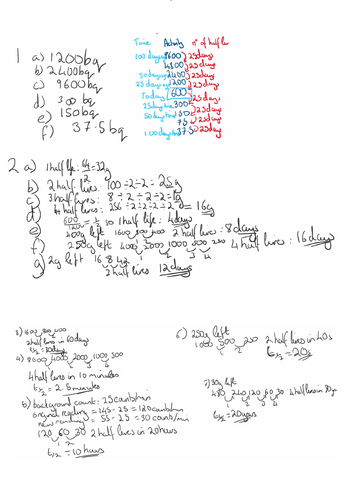 Time Activity n° of half
1 a) 1200bq
b) 2400bq
c) 9600bq
d) 300bq
e) 150bq
f) 37.5bq
100 days 9600 25days
4800 25days
50days 2400 25days
25days 1200
Today 600 25days
300 25days
75 25days
100days 37.5 25days
2 a) 1 half life: 64/2=32g
b) 2 half lives: 100÷2÷2=25g
c) 3 half lives: 8÷2÷2÷2=1g
d) 4 half lives: 256÷2÷2÷2÷2=16g
e) 600/1200 = 1/2 so 1 half life: 4days
f) 400g left 1600 800 400 2 half lives: 8days
250g left 4000 2000 1000 500 250 4 half lives: 16days
g) 2g left 16 8 4 2
half lives 12days
3)
2 half lives in 60days
t1/2 = 30days
4) 8000 4000 2000 1000 500
1 2 3 4
4 half lives in 10 minutes
t1/2 = 2.5minutes
5) background count: 25counts/min
original reading = 145-25=120counts/min
new reading = 55-25=30counts/min
120 60 30 2 half lives in 20hours
1 2
t1/2=10hours
6) 250g left
1000 500 250 2 half lives in 40s
t1/2=20s
7) 30g left
480 240 120 60 30 4 half lives in 80yrs
1 2 3 4
t1/2=20years